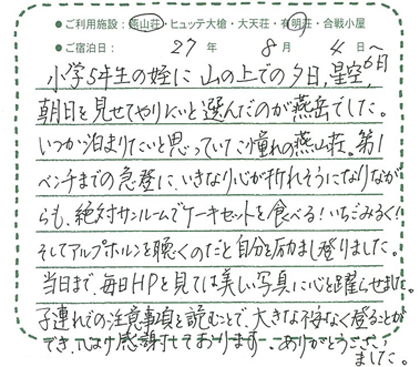 ●ご利用施設：燕山荘・ヒュッテ大槍・大天荘・有明荘・合戦小屋
●ご宿泊日： 27 年 8 月 4 日〜6日
小学5年生の姪に山の上での夕日，星空，
朝日を見せてやりたいと選んだのが燕岳でした。
いつか泊まりたいと思っていた憧れの燕山荘。第1
ベンチまでの急登に、いきなり心が折れそうになりなが
らも、絶対サンルームでケーキセットを食べる！いちごみるく！
そしてアルプホルンを聴くのだと自分を励まし登りました。
当日まで、毎日HPを見ては美しい写真に心を躍らせました。
子連れでの注意事項を読むことで、大きな不安なく登ることが
でき、心より感謝しております。ありがとうござい
ました。